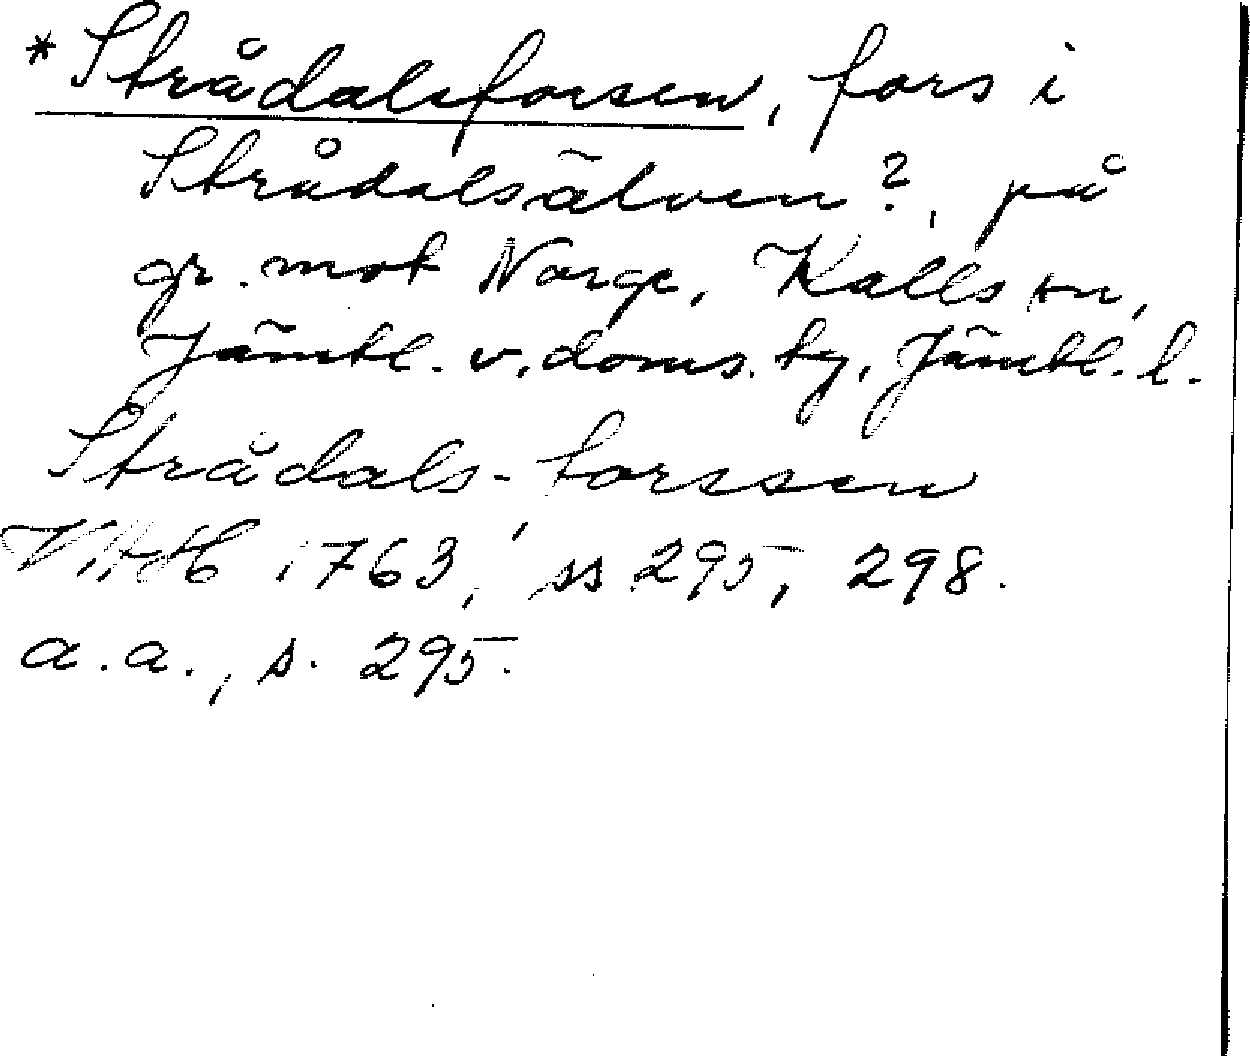 *Strådalsforsen, fors i
Strådalsälven?, på
gr. mot Norge, Kalls sn,
Jämtl. v. doms. tg, Jämtl. l.
Strådals-forssen
1763, ss 295, 298.
a.a., s. 295.